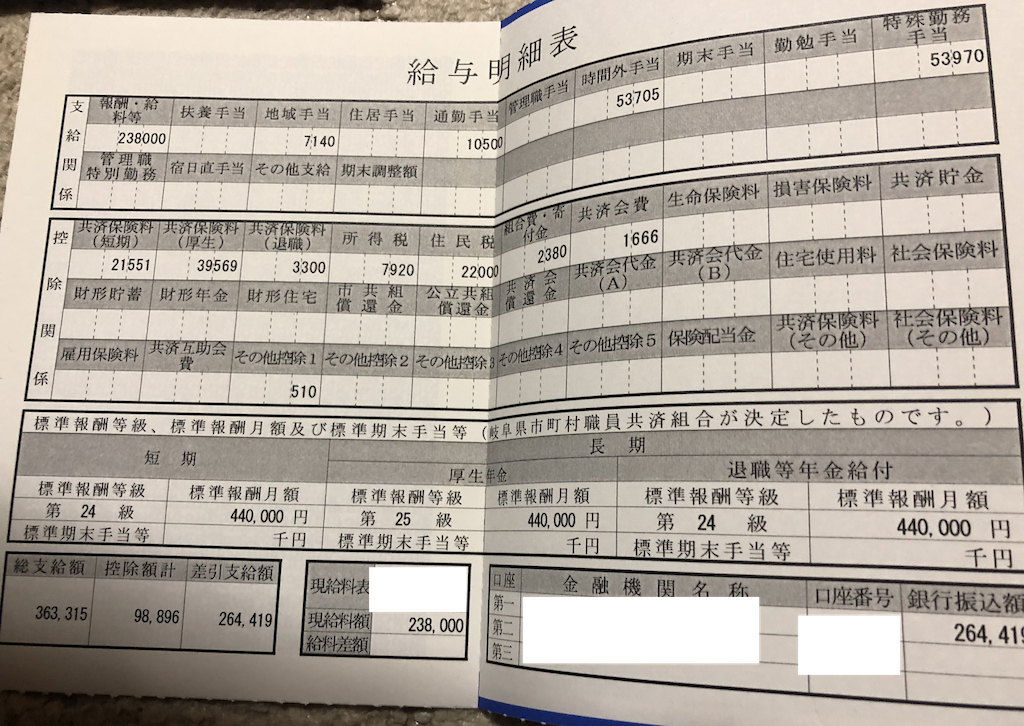 給与明細表
支給関係
報酬・給料等 扶養手当 地域手当 住居手当 通勤手当 管理職手当 時間外手当 期末手当 勤勉手当 特殊勤務手当
238000 7140 10500 53705 53970
管理職特別勤務 宿日直手当 その他支給 期末調整額
控除関係
共済保険料(短期) 共済保険料(厚生) 共済保険料(退職) 所得税 住民税 組合費・寄付金 共済会費 生命保険料 損害保険料 共済貯金
21551 39569 3300 7920 22000 2380 1666
財形貯蓄 財形年金 財形住宅 市共組償還金 公立共組償還金 共済会償還金 共済会代金(A) 共済会代金(B) 住宅使用料 社会保険料
雇用保険料 共済互助会費 その他控除1 その他控除2 その他控除3 その他控除4 その他控除5 保険配当金 共済保険料(その他) 社会保険料(その他)
510
標準報酬等級、標準報酬月額及び標準期末手当等(岐阜県市町村職員共済組合が決定したものです。)
短期 長期
厚生年金 退職等年金給付
標準報酬等級 標準報酬月額 標準報酬等級 標準報酬月額 標準報酬等級 標準報酬月額
第 24 級 440,000 円 第 25 級 440,000 円 第 24 級 440,000 円
標準期末手当等 千円 標準期末手当等 千円 標準期末手当等 千円
総支給額 控除額計 差引支給額
363,315 98,896 264,419
現給料表
現給料額 238,000
給料差額
口座 金融機関名称 口座番号 銀行振込額
第一 264,419
第二
第三